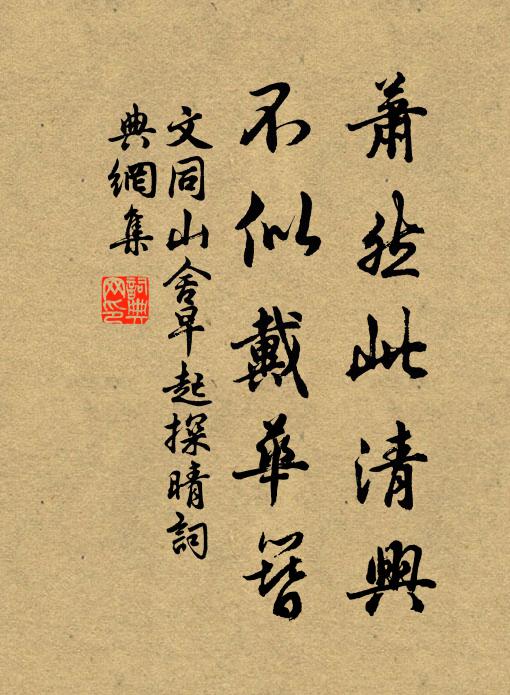 蕭然此清興
不似戴華簪
文同山舍早起探晴詞
典網集
詞典网印